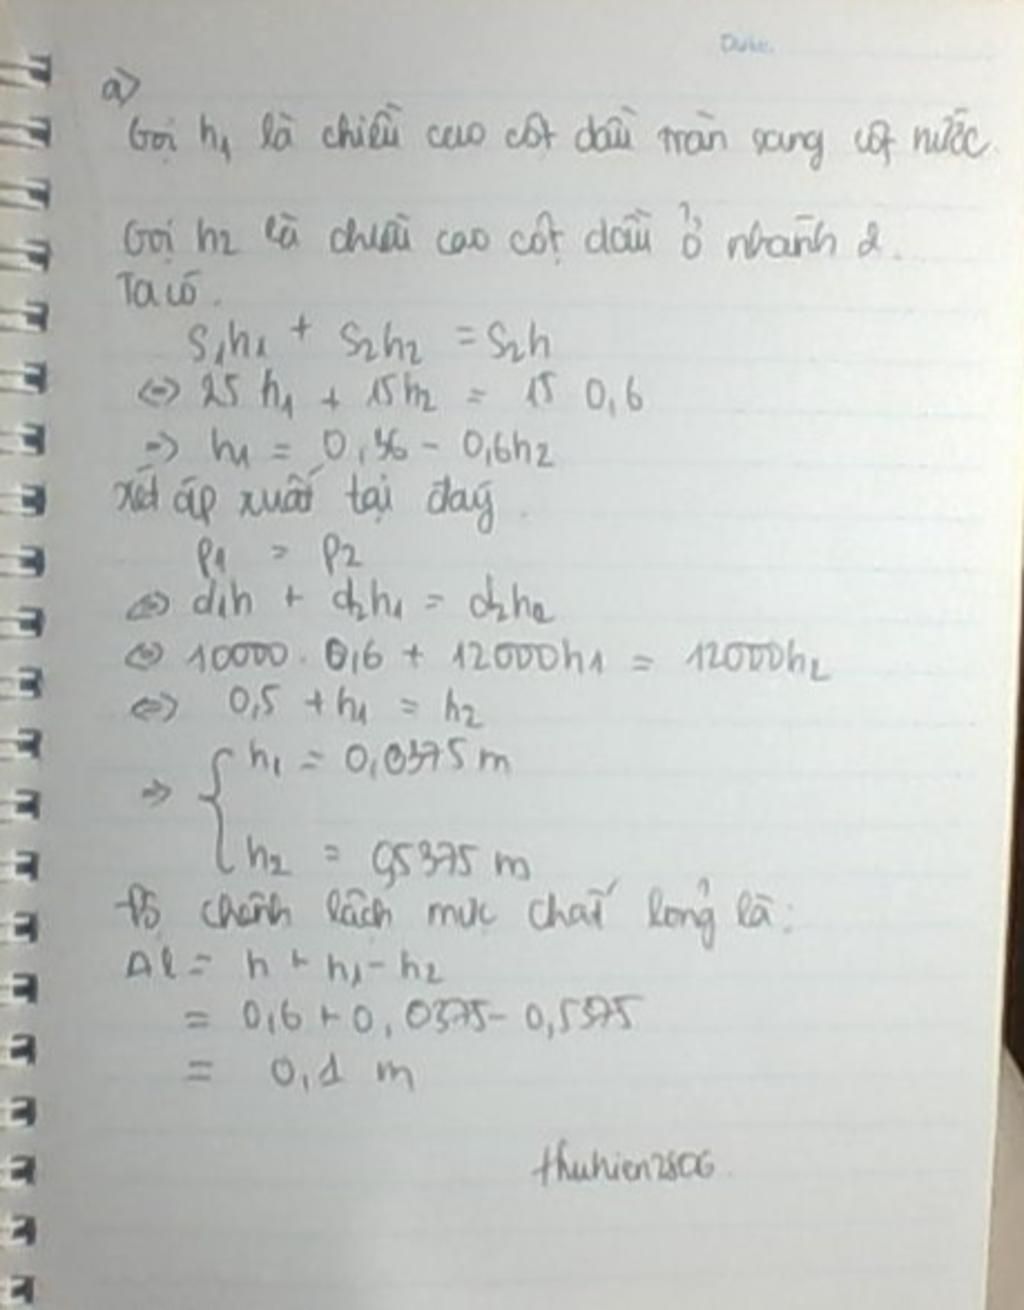 a)
Gọi h₁ là chiều cao cột dầu tràn sang cột nước.
Gọi h2 là chiều cao cột dầu ở nhánh 2.
Ta có.
S₁h₁ + S₂h₂ = S₂h
<=> 25 h₁ + 15h₂ = 15 0,6
=> h₁ = 0,36 - 0,6h₂
Xét áp xuất tại đáy.
P₁ = P₂
<=> d₁h + d₂h₁ = d₂h₂
<=> 10000. 0,6 + 12000h₁ = 12000h₂
<=> 0,5 + h₁ = h₂
=> { h₁ = 0,0375 m
h₂ = 0,5375 m
Độ chênh lệch mực chất lỏng là:
Δl = h + h₁ - h₂
= 0,6 + 0,0375 - 0,5375
= 0,1 m
thuhien2806